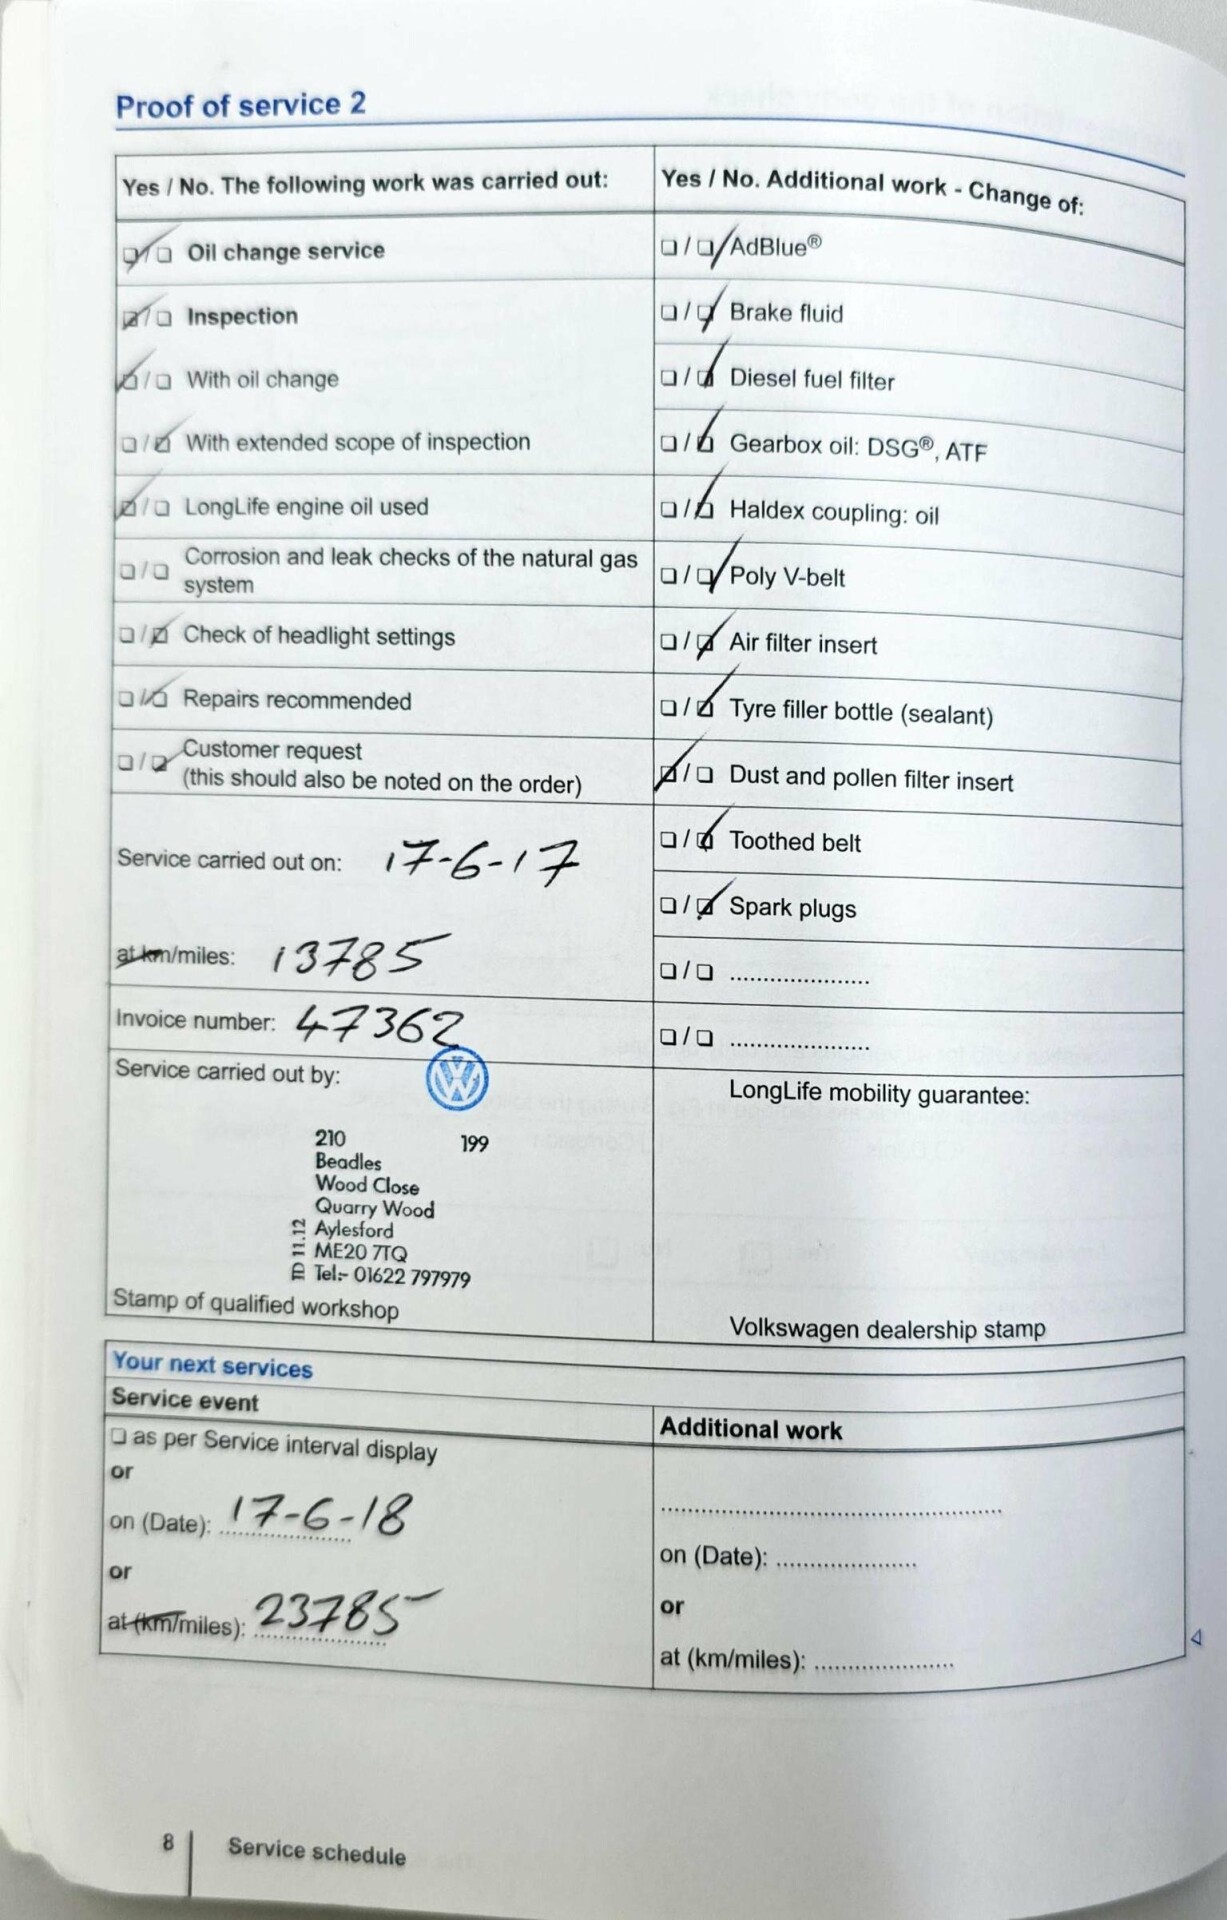 Proof of service 2
Yes / No. The following work was carried out:
☑ / ☐ Oil change service
☑ / ☐ Inspection
☑ / ☐ With oil change
☐ / ☑ With extended scope of inspection
☑ / ☐ LongLife engine oil used
☐ / ☐ Corrosion and leak checks of the natural gas
system
☐ / ☑ Check of headlight settings
☐ / ☑ Repairs recommended
☐ / ☑ Customer request
(this should also be noted on the order)
Service carried out on: 17-6-17
at km/miles: 13785
Invoice number: 47362
Service carried out by:
VW
210 199
Beadles
Wood Close
Quarry Wood
Aylesford
ME20 7TQ
Tel:- 01622 797979
ID 11.12
Stamp of qualified workshop
Yes / No. Additional work - Change of:
☐ / ☑ AdBlue®
☐ / ☑ Brake fluid
☐ / ☑ Diesel fuel filter
☐ / ☑ Gearbox oil: DSG®, ATF
☐ / ☑ Haldex coupling: oil
☐ / ☑ Poly V-belt
☐ / ☑ Air filter insert
☐ / ☑ Tyre filler bottle (sealant)
☑ / ☐ Dust and pollen filter insert
☐ / ☑ Toothed belt
☐ / ☑ Spark plugs
☐ / ☐ .....................
☐ / ☐ .....................
LongLife mobility guarantee:
Volkswagen dealership stamp
Your next services
Service event
☐ as per Service interval display
or
on (Date): 17-6-18
or
at (km/miles): 23785
Additional work
..................................................
on (Date): .....................
or
at (km/miles): .....................
8 Service schedule